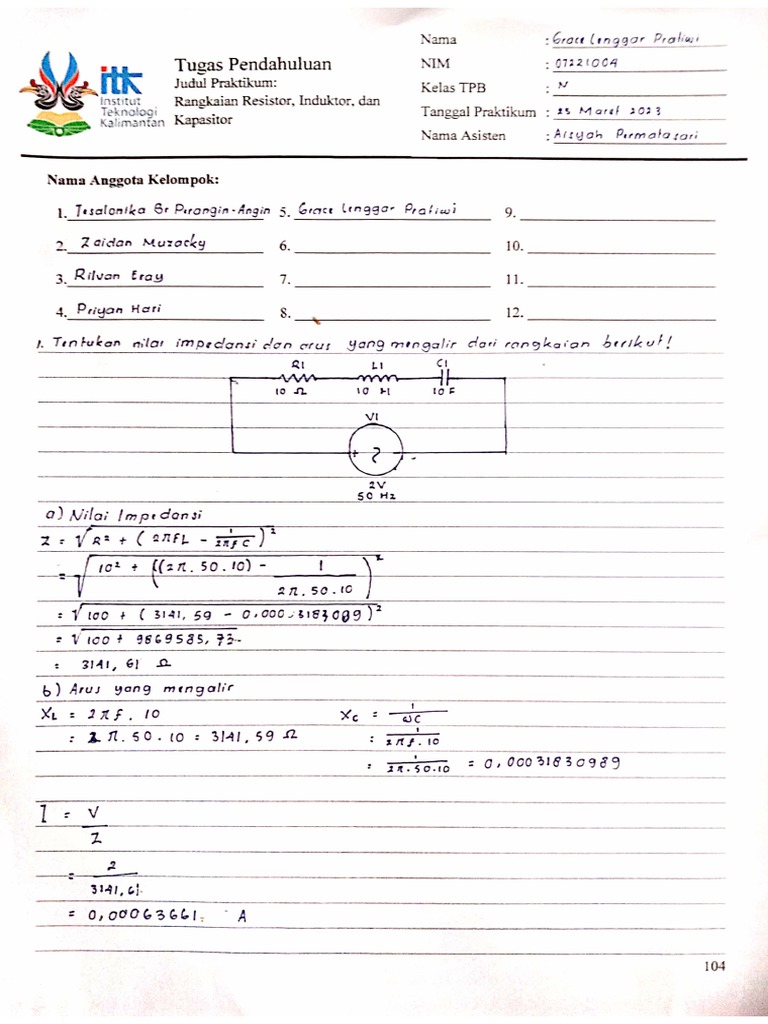 itk
Institut
Teknologi
Kalimantan
Tugas Pendahuluan
Judul Praktikum:
Rangkaian Resistor, Induktor, dan
Kapasitor
Nama : Grace Lenggar Pratiwi
NIM : 07221004
Kelas TPB : N
Tanggal Praktikum : 25 Maret 2023
Nama Asisten : Aisyah Permatasari
Nama Anggota Kelompok:
1. Tesalonika Br Perangin-Angin 5. Grace Lenggar Pratiwi 9.
2. Zaidan Muzacky 6. 10.
3. Rilvan Eray 7. 11.
4. Priyan Hari 8. 12.
1. Tentukan nilai impedansi dan arus yang mengalir dari rangkaian berikut!
R1 L1 C1
10 Ω 10 H 10 F
V1
+ -
2V
50 Hz
a) Nilai Impedansi
Z = √R² + (2πfL - 1/2πfC)²
= √10² + ((2π.50.10) - 1/2π.50.10)²
= √100 + (3141,59 - 0,00031830989)²
= √100 + 9869585,73
= 3141,61 Ω
b) Arus yang mengalir
XL = 2πf.10 Xc = 1/ωC
= 2π.50.10 = 3141,59 Ω = 1/2πf.10
= 1/2π.50.10 = 0,00031830989
I = V/Z
= 2/3141,61
= 0,00063661 A
104